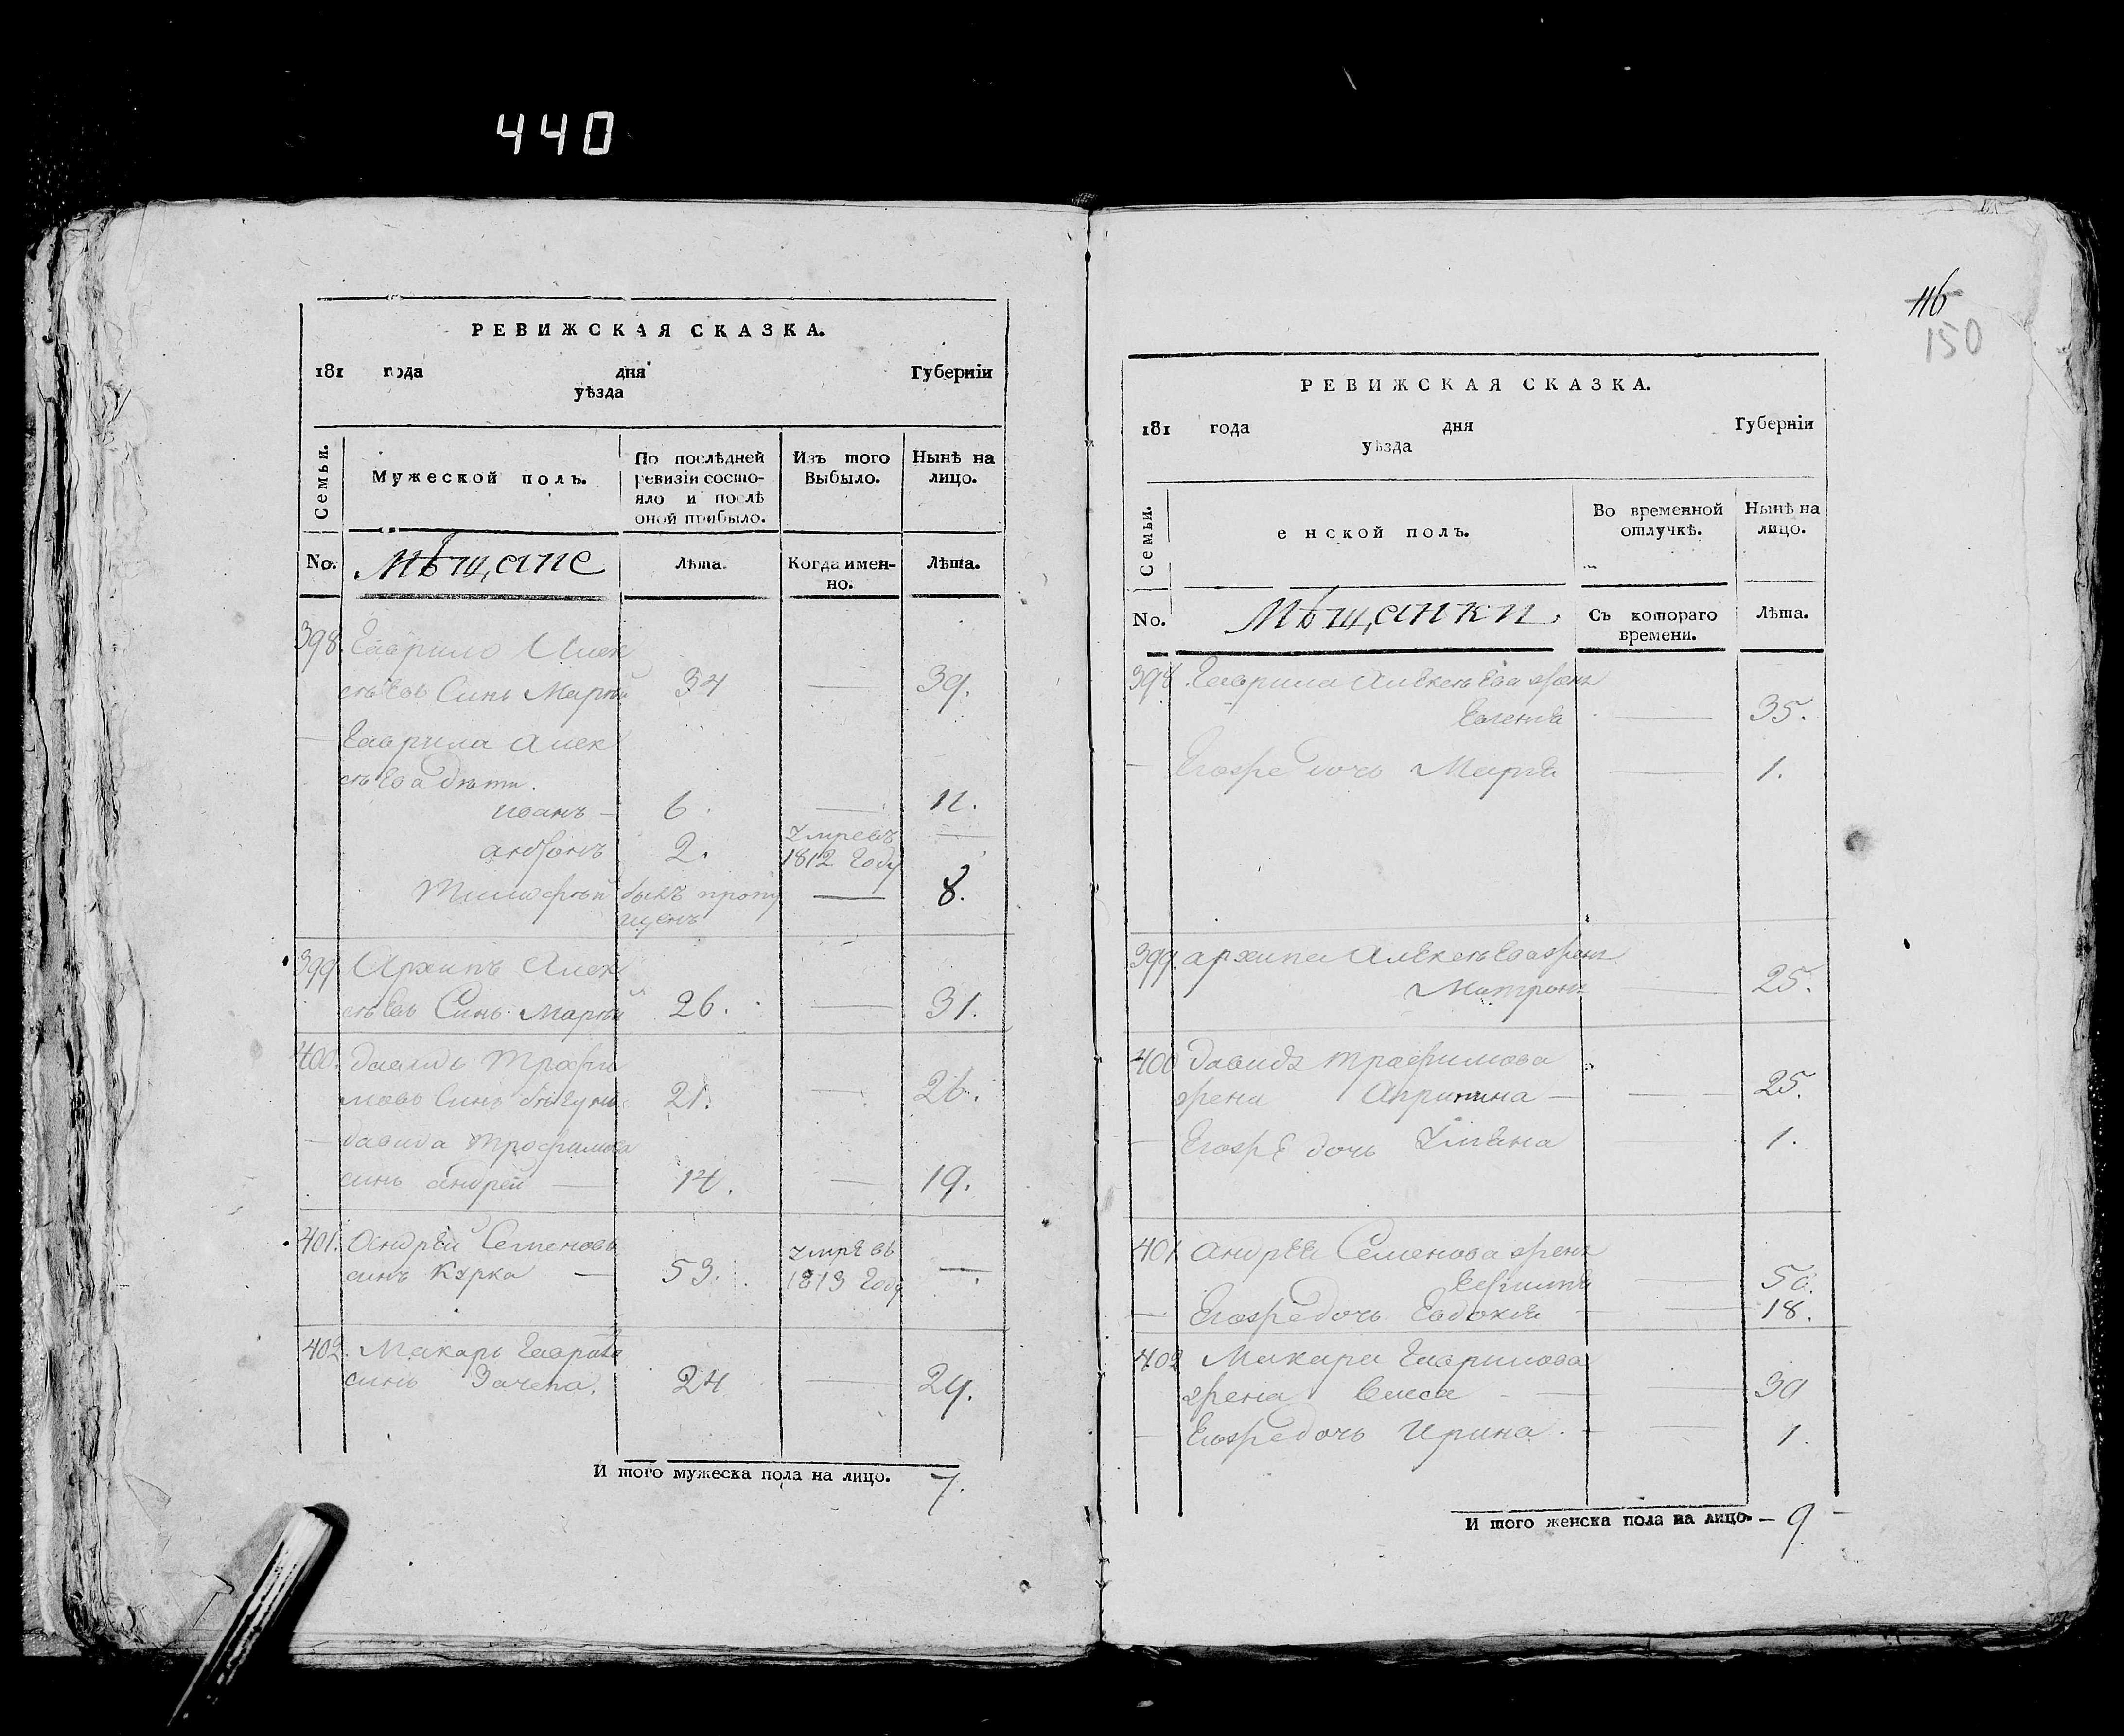 440
РЕВИЖСКАЯ СКАЗКА.
181 года дня Губернїи
уѣзда
Семьи.
Мужеской полъ.
По послѣдней ревизїи состо-
яло и послѣ оной прибыло.
Изъ того Выбыло.
Нынѣ на лицо.
No. Мѣщане Лѣта. Когда имен-
но. Лѣта.
398. Гаврило Алек
сѣевъ Синъ 34 — 39.
— Гаврила Алек
сѣева дѣти.
иванъ — 6. — 11.
2. умре въ 1812 году —
Тимофѣй былъ пропу
щенъ — 8.
399 Архипъ Алек
сѣевъ Синъ 26. — 31.
400. давидъ Трофи
мовъ Синъ бѣгунъ 21. — 26.
— давида Трофимова
синъ андрей — 14. — 19.
401. Андрей Семеновъ
синъ Курка — 53. умре въ 1813 году —.
402. Макаръ Гаврило
синъ Зачепа. 24 — 29.
И того мужеска пола на лицо. 7.
116
150
РЕВИЖСКАЯ СКАЗКА.
181 года дня Губернїи
уѣзда
Семьи.
енской полъ.
Во временной отлучкѣ.
Нынѣ на лицо.
No. Мѣщанки. Съ котораго
времени. Лѣта.
398. Гаврила Алексѣева жена
— 35.
— Егоже дочь Марїя — 1.
399. архипа Алексѣева жена
Матрона — 25.
400 давида трофимова
жена — — 25.
— Егоже дочь Улияна — 1.
401 андрея Семенова жена
— 50.
— Егоже дочь Евдокия — 18.
402 Макара Гаврилова
жена — 30
— Егоже дочь Ирина. — 1.
И того женска пола на лицо. — 9.